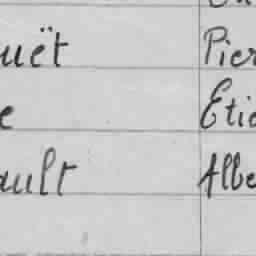 uët Pier
e Etie
ault Albe